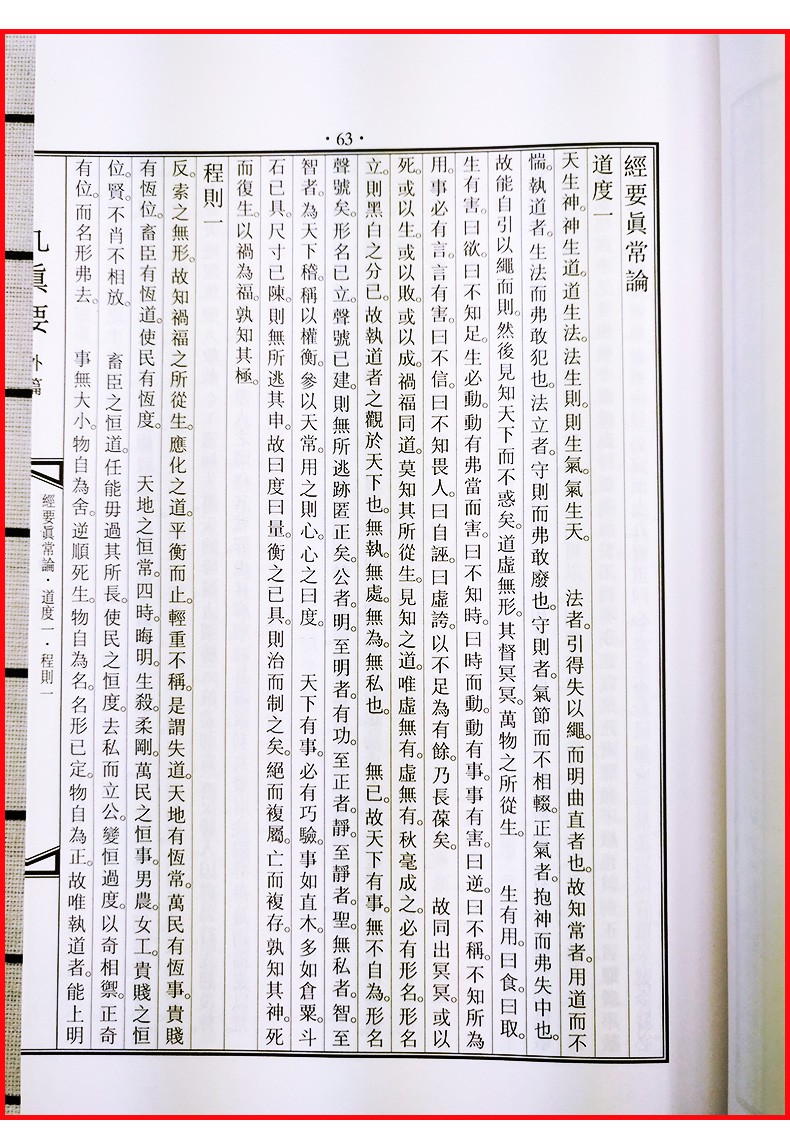 ·63·
經要眞常論
道度一
天生神。神生道。道生法。法生則。則生氣。氣生天。　法者。引得失以繩。而明曲直者也。故知常者。用道而不
惴。執道者。生法而弗敢犯也。法立者。守則而弗敢廢也。守則者。氣節而不相輟。正氣者。抱神而弗失中也。
故能自引以繩而則。然後見知天下而不惑矣。道虛無形。其督冥冥。萬物之所從生。　生有用。曰食。曰取。
生有害。曰欲。曰不知足。生必動。動有弗當而害。曰不知時。曰時而動。動有事。事有害。曰逆。曰不稱。不知所為
用。事必有言。言有害。曰不信。曰不知畏人。曰自誣。曰虛誇。以不足為有餘。乃長葆矣。　故同出冥冥。或以
死。或以生。或以敗。或以成。禍福同道。莫知其所從生。見知之道。唯虛無有。虛無有。秋毫成之。必有形名。形名
立。則黑白之分已。故執道者之觀於天下也。無執。無處。無為。無私也。　無已。故天下有事。無不自為。形名
聲號矣。形名已立。聲號已建。則無所逃跡匿正矣。公者。明。至明者。有功。至正者。靜。至靜者。聖。無私者。智。至
智者。為天下稽。稱以權衡。參以天常。用之則心。心之曰度。　天下有事。必有巧驗。事如直木。多如倉粟。斗
石已具。尺寸已陳。則無所逃其申。故曰度曰量。衡之已具。則治而制之矣。絕而複屬。亡而複存。孰知其神。死
而復生。以禍為福。孰知其極。
程則一
反索之無形。故知禍福之所從生。應化之道。平衡而止。輕重不稱。是謂失道。天地有恆常。萬民有恆事。貴賤
有恆位。畜臣有恆道。使民有恆度。　天地之恒常。四時。晦明。生殺。柔剛。萬民之恒事。男農。女工。貴賤之恒
位。賢。不肖不相放。　畜臣之恒道。任能毋過其所長。使民之恒度。去私而立公。變恒過度。以奇相禦。正奇
有位。而名形弗去。　事無大小。物自為舍。逆順死生。物自為名。名形已定。物自為正。故唯執道者。能上明
眞要
外篇
經要眞常論·道度一·程則一